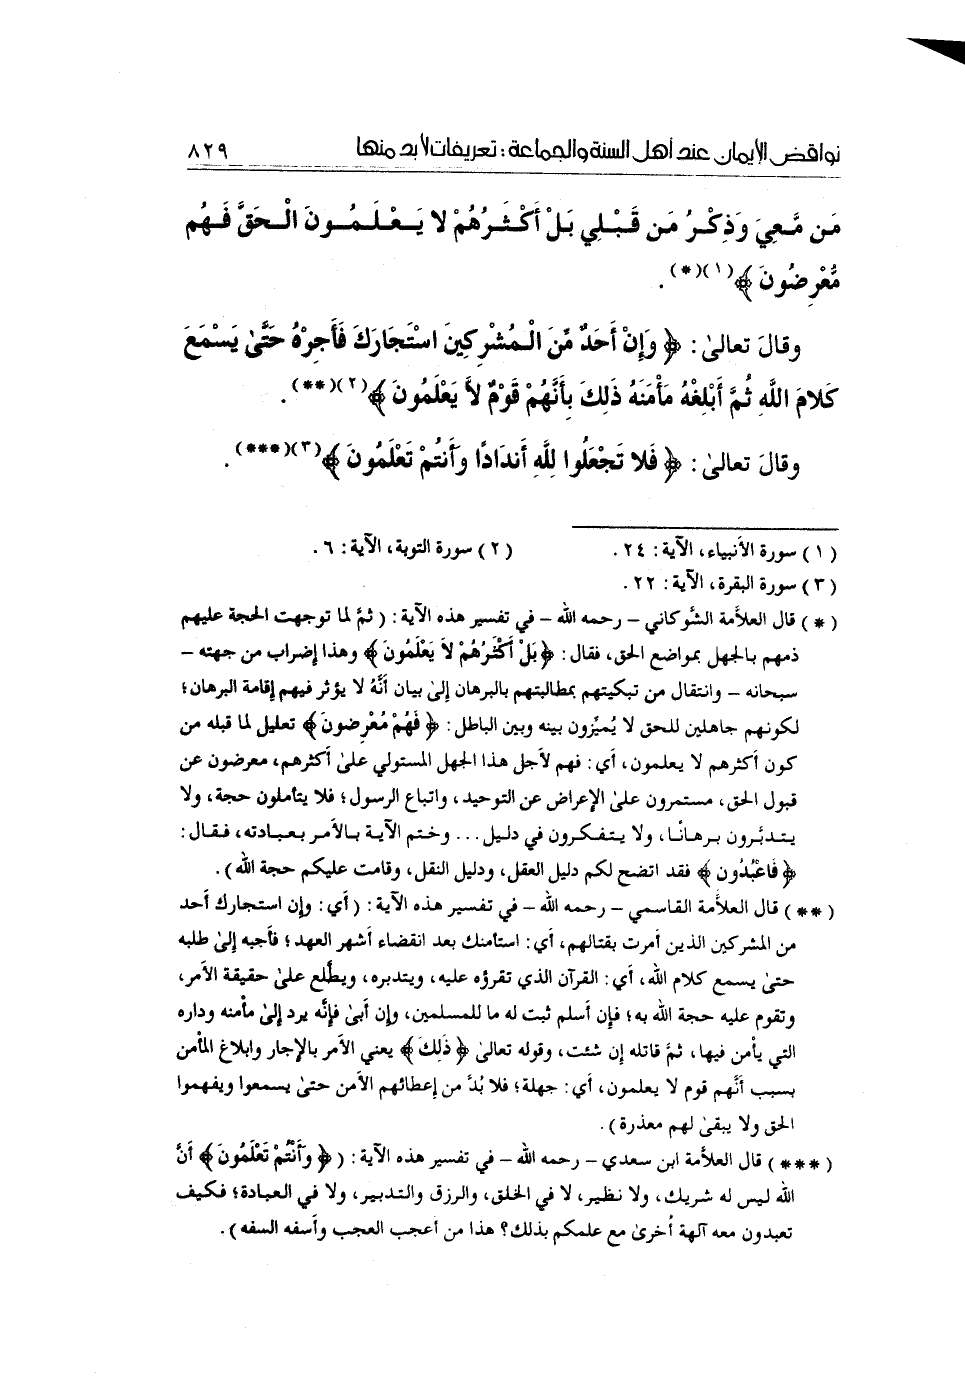 نواقض الإيمان عند أهل السنة والجماعة : تعريفات لابد منها ٨٢٩
مَن مَّعِيَ وَذِكْرُ مَن قَبْلِي بَلْ أَكْثَرُهُمْ لا يَعْلَمُونَ الْحَقَّ فَهُم
مُّعْرِضُونَ ﴾(١)(*) .
وقالَ تعالىٰ : ﴿ وَإِنْ أَحَدٌ مِّنَ الْمُشْرِكِينَ اسْتَجَارَكَ فَأَجِرْهُ حَتَّىٰ يَسْمَعَ
كَلامَ اللَّهِ ثُمَّ أَبْلِغْهُ مَأْمَنَهُ ذَلِكَ بِأَنَّهُمْ قَوْمٌ لاَّ يَعْلَمُونَ ﴾(٢)(**) .
وقالَ تعالىٰ : ﴿ فَلا تَجْعَلُوا لِلَّهِ أَندَادًا وَأَنتُمْ تَعْلَمُونَ ﴾(٣)(***) .
(١) سورة الأنبياء، الآية : ٢٤ . (٢) سورة التوبة، الآية : ٦ .
(٣) سورة البقرة، الآية : ٢٢ .
(*) قال العلاَّمة الشَّوكاني – رحمه الله – في تفسير هذه الآية : (ثمَّ لما توجهت الحجة عليهم
ذمهم بالجهل بمواضع الحق، فقال : ﴿بَلْ أَكْثَرُهُمْ لاَ يَعْلَمُونَ﴾ وهذا إضراب من جهته –
سبحانه – وانتقال من تبكيتهم بمطالبتهم بالبرهان إلىٰ بيان أنَّهُ لا يؤثر فيهم إقامة البرهان؛
لكونهم جاهلين للحق لا يُميِّزون بينه وبين الباطل : ﴿ فَهُمْ مُعْرِضونَ﴾ تعليل لما قبله من
كون أكثرهم لا يعلمون، أي : فهم لأجل هذا الجهل المستولي علىٰ أكثرهم، معرضون عن
قبول الحق، مستمرون علىٰ الإعراض عن التوحيد، واتباع الرسول؛ فلا يتأملون حجة، ولا
يتدبَّرون برهانًا، ولا يتفكرون في دليل ... وختم الآية بالأمر بعبادته، فقال :
﴿فَاعْبُدُون﴾ فقد اتضح لكم دليل العقل، ودليل النقل، وقامت عليكم حجة الله) .
(**) قال العلاَّمة القاسمي – رحمه الله – في تفسير هذه الآية : (أي : وإن استجارك أحد
من المشركين الذين أمرت بقتالهم، أي : استأمنك بعد انقضاء أشهر العهد؛ فأجبه إلىٰ طلبه
حتىٰ يسمع كلام الله، أي : القرآن الذي تقرؤه عليه، ويتدبره، ويطَّلع علىٰ حقيقة الأمر،
وتقوم عليه حجة الله به؛ فإن أسلم ثبت له ما للمسلمين، وإن أبىٰ فإنَّه يرد إلىٰ مأمنه وداره
التي يأمن فيها، ثمَّ قاتله إن شئت، وقوله تعالىٰ ﴿ذَلِكَ﴾ يعني الأمر بالإجار وابلاغ المأمن
بسبب أنَّهم قوم لا يعلمون، أي : جهلة؛ فلا بُدَّ من إعطائهم الأمن حتىٰ يسمعوا ويفهموا
الحق ولا يبقىٰ لهم معذرة) .
(***) قال العلاَّمة ابن سعدي – رحمه الله – في تفسير هذه الآية : (﴿ وَأَنْتُمْ تَعْلَمُونَ﴾ أنَّ
الله ليس له شريك، ولا نظير، لا في الخلق، والرزق والتدبير، ولا في العبادة؛ فكيف
تعبدون معه آلهة أخرىٰ مع علمكم بذلك؟ هذا من أعجب العجب وأسفه السفه) .